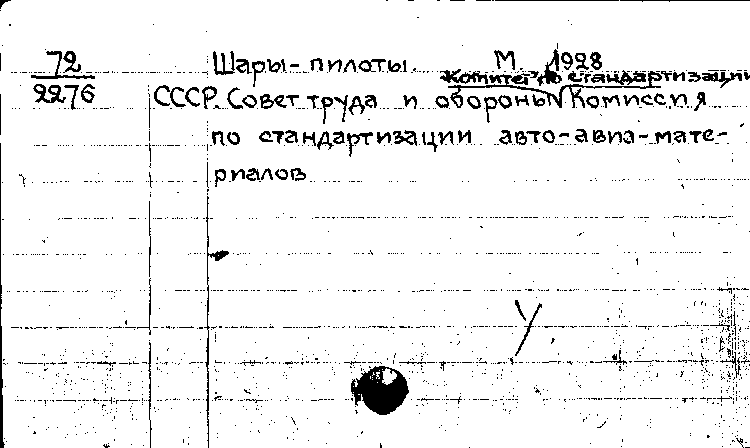 72 Шары-пилоты. М. 1928
Комитет по стандартизации
2276 СССР. Совет труда и обороны Комиссия
по стандартизации авто-авиа-мате-
риалов
У